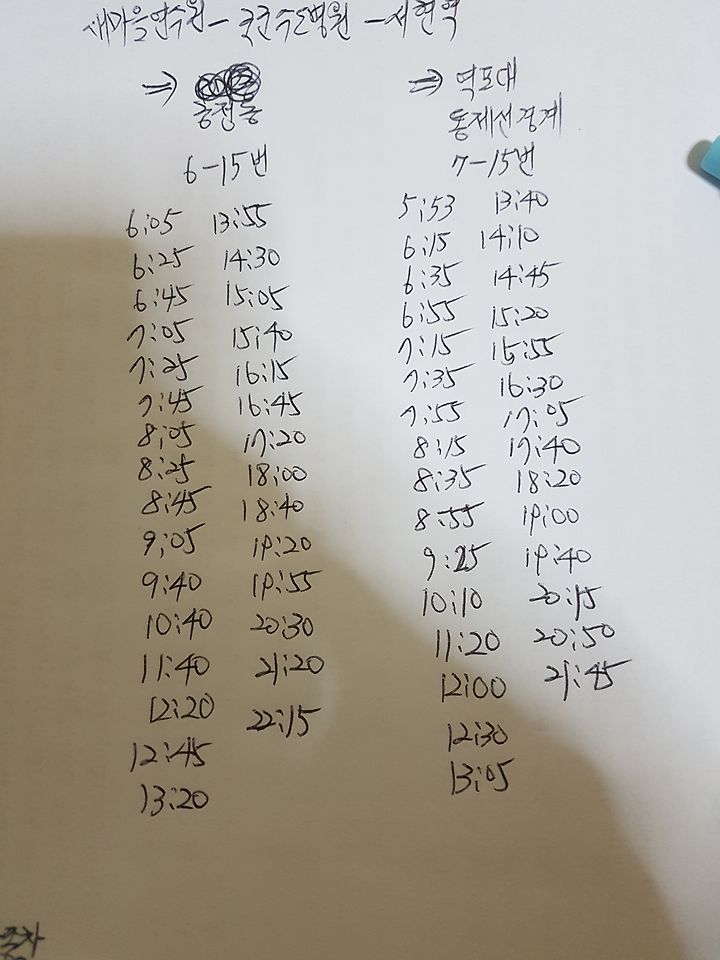 새마을연수원 - 국군수도병원 - 서현역
⇒
6-15번
6:05 13:55
6:25 14:30
6:45 15:05
7:05 15:40
7:25 16:15
7:45 16:45
8:05 17:20
8:25 18:00
8:45 18:40
9:05 19:20
9:40 19:55
10:40 20:30
11:40 21:20
12:20 22:15
12:45
13:20
⇒ 역포대
동제선경계
7-15번
5:53 13:40
6:15 14:10
6:35 14:45
6:55 15:20
7:15 15:55
7:35 16:30
7:55 17:05
8:15 17:40
8:35 18:20
8:55 19:00
9:25 19:40
10:10 20:15
11:20 20:50
12:00 21:45
12:30
13:05